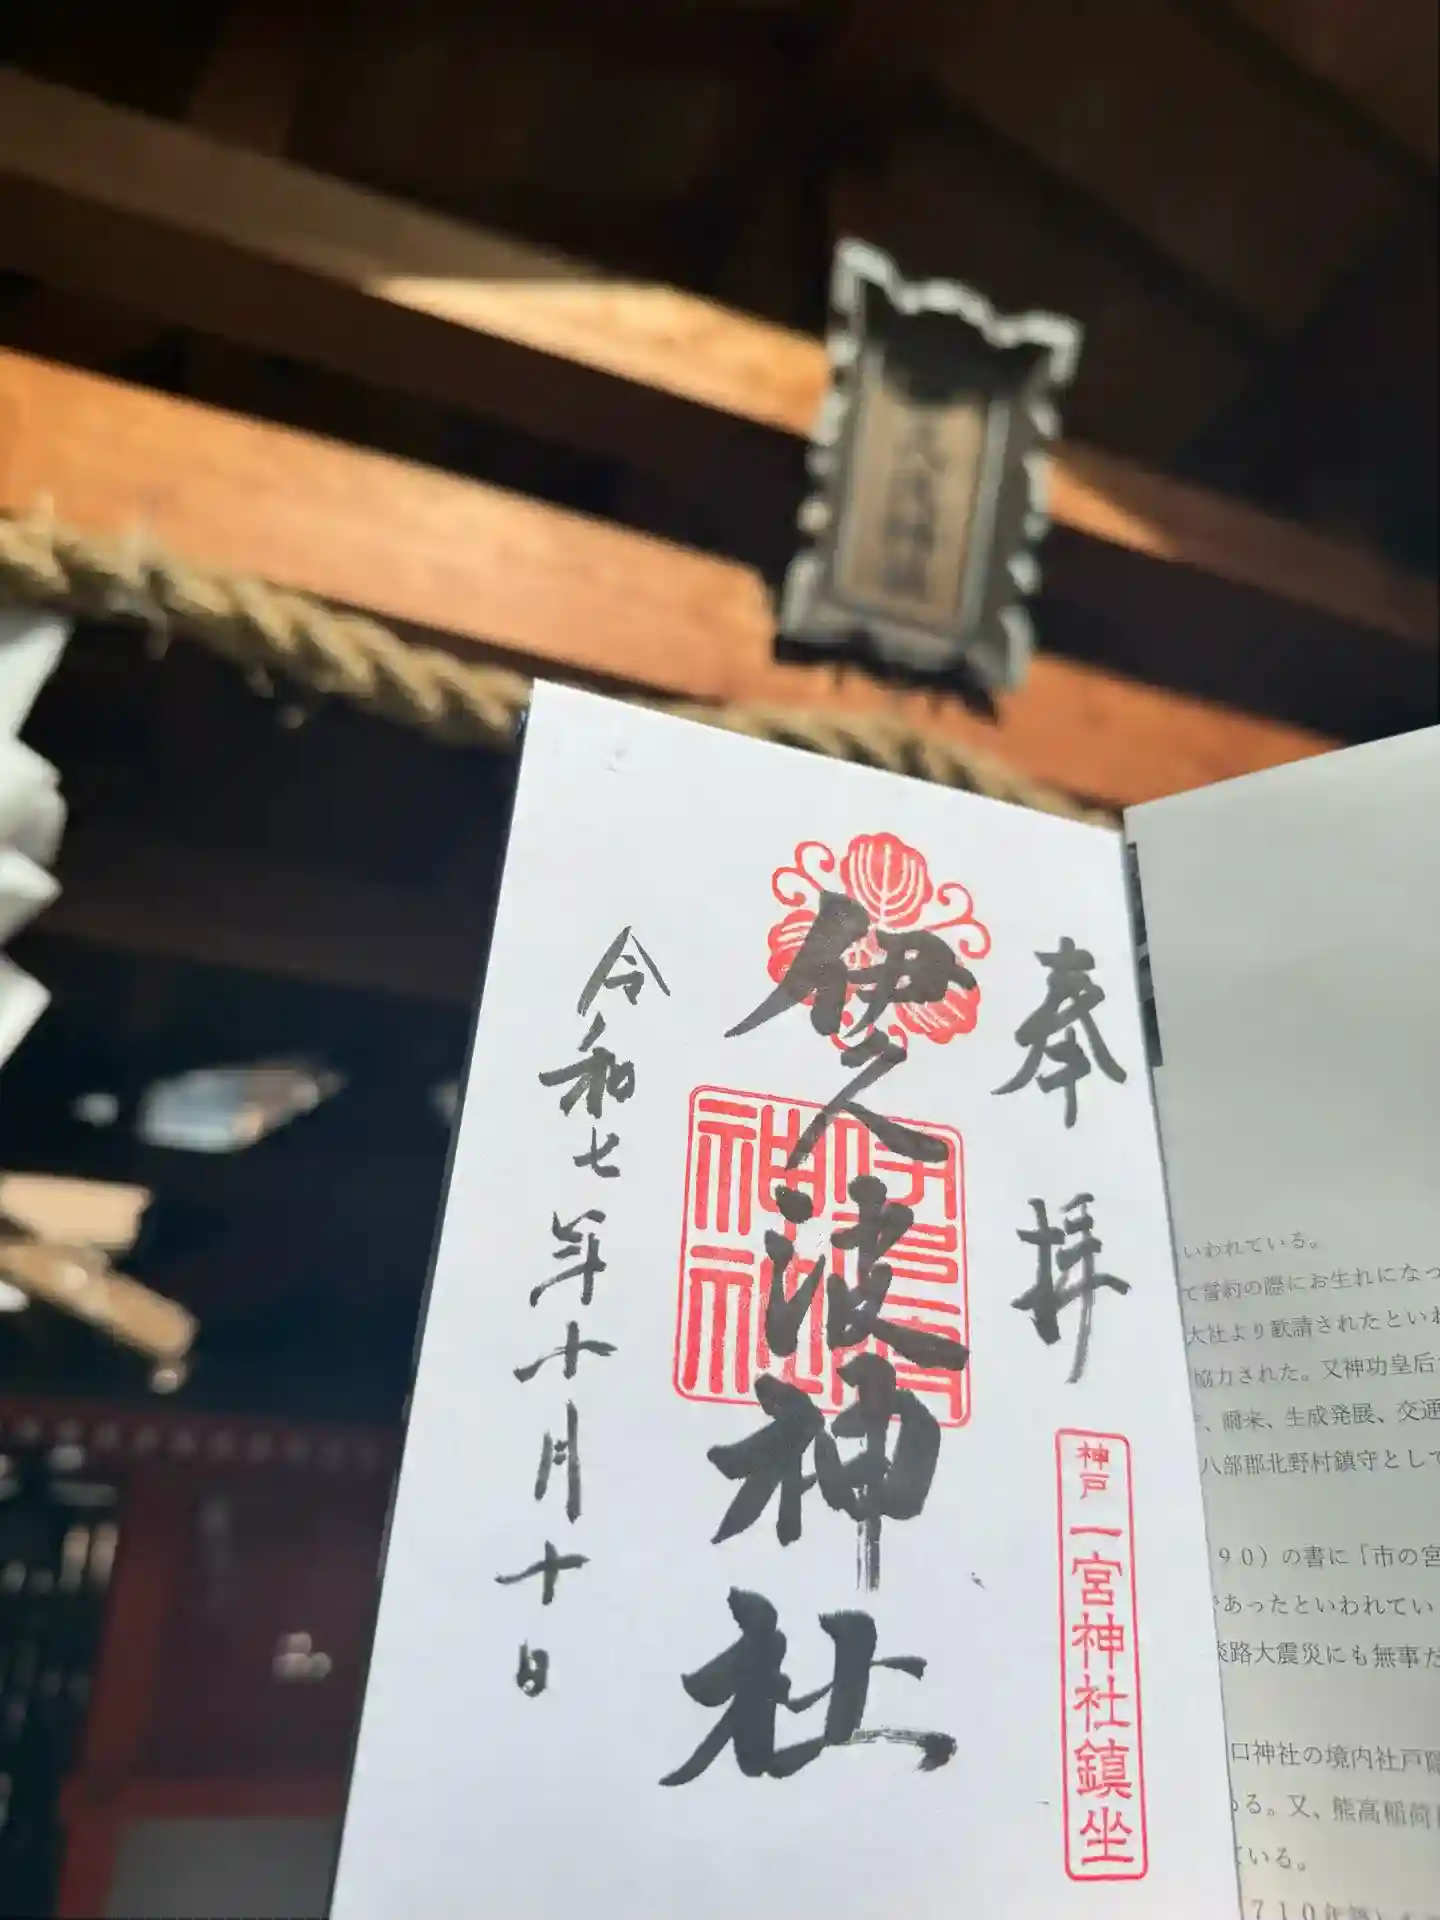 奉拝
神戸一宮神社鎮坐
伊久波神社
令和七年十月十日
いわれている。
て誓約の際にお生れになっ
大社より歓請されたといわ
協力された。又神功皇后
、爾来、生成発展、交通
八部郡北野村鎮守として
90）の書に「市の宮
であったといわれてい
淡路大震災にも無事だ
口神社の境内社戸隠
ある。又、熊高稲荷
ている。
710年